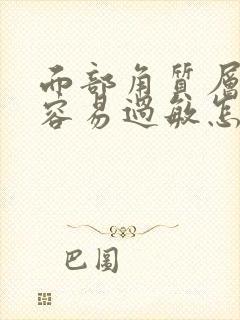 面部角質層
容易過敏怎
巴圖